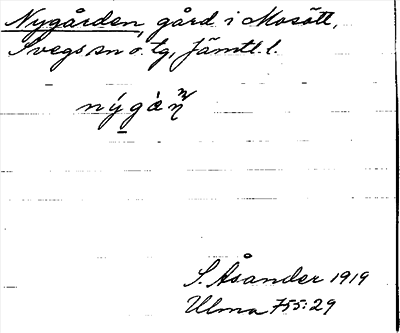 Nygården, gård i Mosätt,
Svegs sn o. tg, Jämtl. l.
S. Åsander 1919
Ulma 755:29